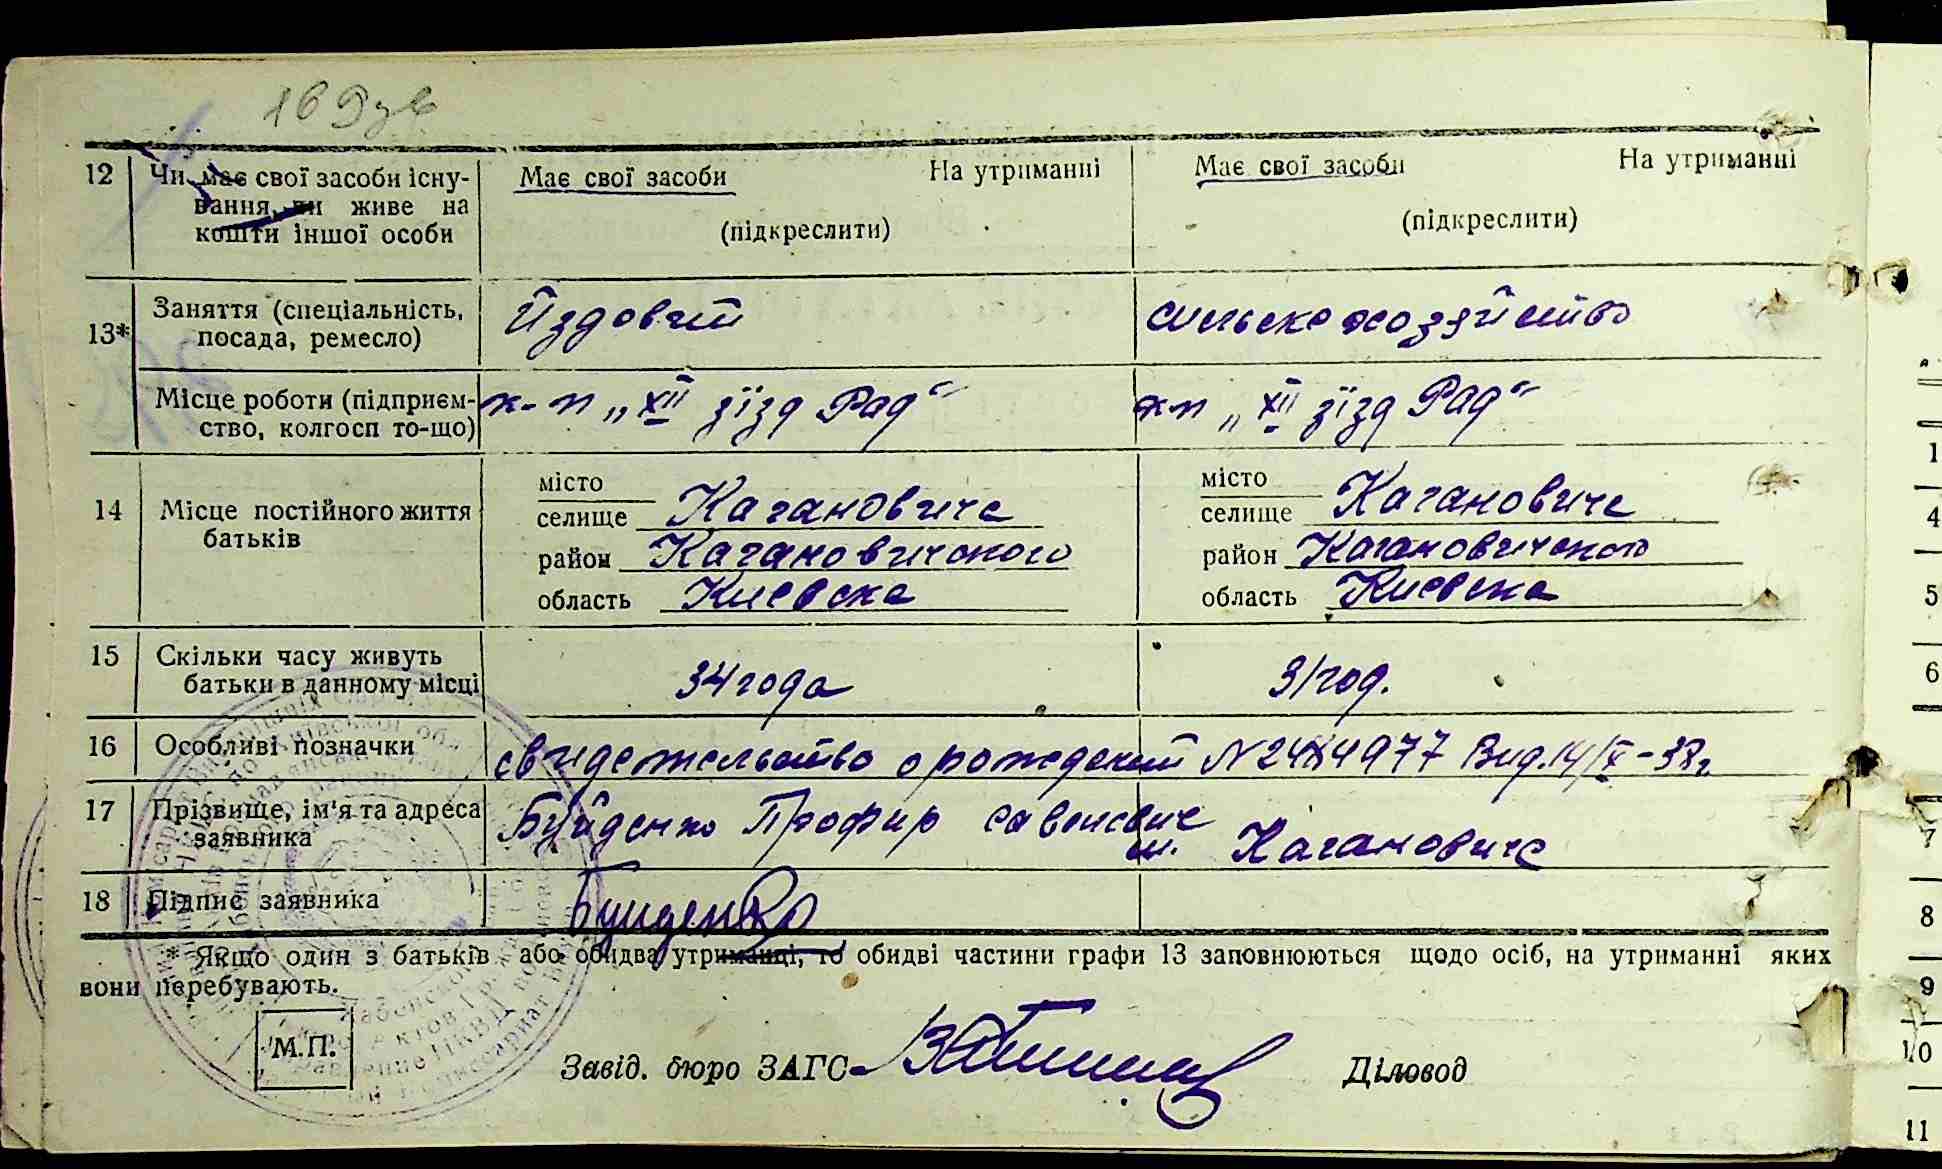 12 Чи має свої засоби існу-
вання, чи живе на
кошти іншої особи
Має свої засоби На утриманні
(підкреслити)
Має свої засоби На утриманні
(підкреслити)
13* Заняття (спеціальність,
посада, ремесло)
Йздовий
сильско хозяйство
Місце роботи (підприєм-
ство, колгосп то-що)
к-п „XII зїзд Рад“
кп „XII зїзд Рад“
14 Місце постійного життя
батьків
місто
селище Кагановиче
район Кагановичского
область Киевска
місто
селище Кагановиче
район Кагановичского
область Киевска
15 Скільки часу живуть
батьки в данному місці
34 года
31 год.
16 Особливі позначки
свидетельство о рождений N 244977 Вид. 14/X-38г
17 Прізвище, ім'я та адреса
заявника
Буйденко Профир савенович
м. Кагановиче
18 Підпис заявника
Буйденко
* Якщо один з батьків або обидва утриманці, то обидві частини графи 13 заповнюються щодо осіб, на утриманні яких
вони перебувають.
М.П.
Завід. бюро ЗАГС
Діловод
1
4
5
6
7
8
9
10
11